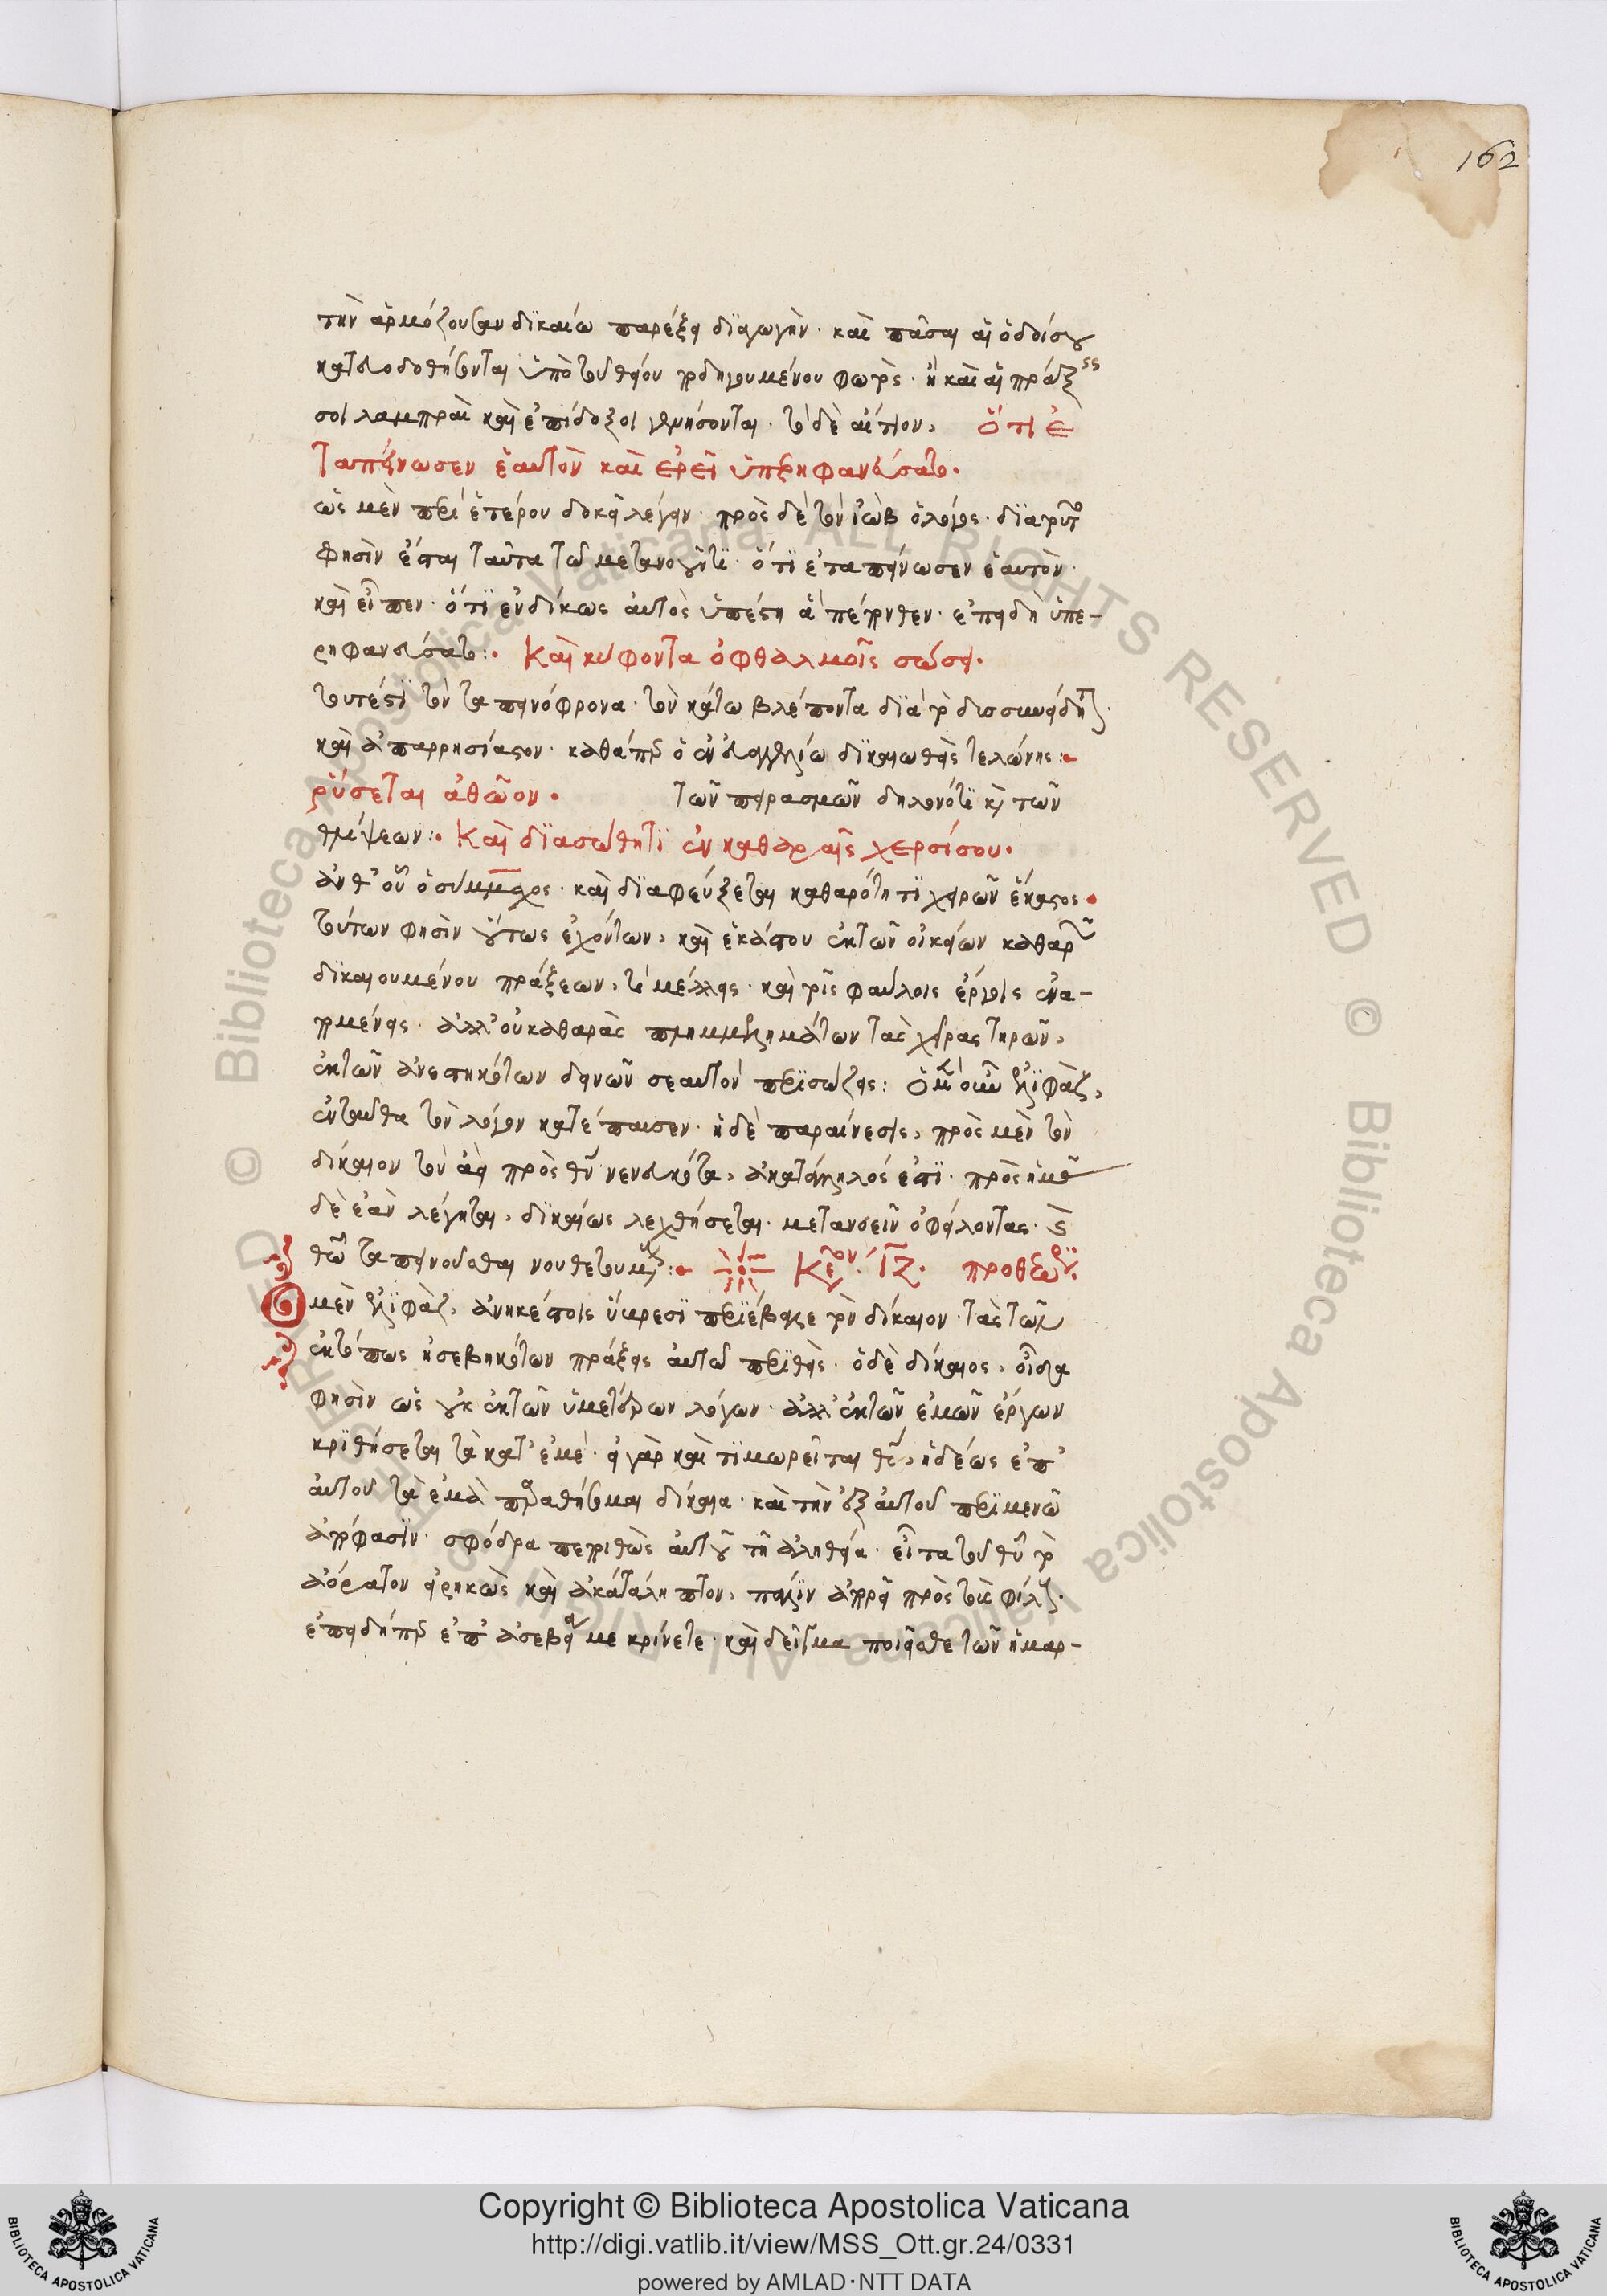 162
τὴν ἁρμόζουσαν δικαίω παρέξει διαγωγὴν· καὶ πᾶσαι αἱ ὁδοί σου
κατευοδοθήσονται ὑπὸ τοῦ θείου ὁδηγουμένου φωτός· ἢ καὶ αἱ πράξεις
σοι λαμπραὶ καὶ ἐπίδοξοι γενήσονται· τὸ δὲ αἴτιον, ὅτι ἐ
ταπείνωσεν ἑαυτὸν καὶ ἐρεῖ ὑπερηφανεύσατο·
ὡς μὲν περὶ ἑτέρου δοκεῖ λέγειν· πρὸς δὲ τὸν ἰὼβ ὁ λόγος· διατοῦτο
φησὶν ἔσται ταῦτα τῶ μετανοοῦντι· ὅτι ἐταπείνωσεν ἑαυτὸν·
καὶ εἶπεν· ὅτι ἐνδίκως αὐτὸς ὑπέστη ἃ πέπονθεν· ἐπειδὴ ὑπε-
ρηφανεύσατο:· Καὶ κύφοντα ὀφθαλμοῖς σώσει·
τουτέστι τὸν ταπεινόφρονα· τὸν κάτω βλέποντα διὰ τὸ δυσσυνείδητον·
καὶ ἀπαρρησίαστον· καθάπερ ὁ ἐν εὐαγγελίω δικαιωθεὶς τελώνης:·
ῥύσεται ἀθῶον· τῶν πειρασμῶν δηλονότι καὶ τῶν
θλίψεων:· Καὶ διασώθητι ἐν καθαραῖς χερσί σου·
ἀνθ' οὗ ὁ σύμμαχος· καὶ διαφεύξεται καθαρότητι χειρῶν ἕκαστος·
τούτων φησὶν οὕτως ἐχόντων, καὶ ἑκάστου ἐκ τῶν οἰκείων καθαρῶν
δικαιουμένου πράξεων, τί μέλλεις· καὶ τοῖς φαύλοις ἔργοις ἐνα-
πομένεις· ἀλλ' οὐ καθαρὰς πλημμελημάτων τὰς χεῖρας τηρῶν,
ἐκ τῶν ἀνεστηκότων δεινῶν σεαυτὸν περισώζεις: Ὁ μὲν οὖν ἐλιφὰζ,
ἐνταῦθα τὸν λόγον κατέπαυσεν· ἡ δὲ παραίνεσις, πρὸς μὲν τὸν
δίκαιον τὸν ἀεὶ πρὸς θεὸν νενευκότα, ἀκατάλληλός ἐστι· πρὸς ἡμᾶς
δὲ ἐὰν λέγηται, δικαίως λεχθήσεται· μετανοεῖν ὀφείλοντας· καὶ
θεῶ ταπεινοῦσθαι νουθετουμένους:· Κεφάλαιον· ΙΖ· προθεωρία·
Ὁ μὲν ἐλιφὰζ, ἀνηκέστοις ὕβρεσι περιέβαλε τὸν δίκαιον· τὰς τῶν
ἐκτόπως ἠσεβηκότων πράξεις αὐτῶ περιθείς· ὁ δὲ δίκαιος, οἶδα
φησὶν ὡς οὐκ ἐκ τῶν ὑμετέρων λόγων· ἀλλ' ἐκ τῶν ἐμῶν ἔργων
κριθήσεται τὰ κατ' ἐμέ· εἰ γὰρ καὶ τιμωρεῖται θεός, ἡδέως ἐπ'
αὐτοῦ τὰ ἐμὰ προθήσομαι δίκαια· καὶ τὴν ἐξ αὐτοῦ περιμενῶ
ἀπόφασιν· σφόδρα πεποιθὼς αὐτοῦ τῆ ἀληθεία· εἶτα τοῦ θεοῦ τὸ
ἀόρατον εἰρηκὼς καὶ ἀκατάληπτον, πάλιν ἀπορεῖ πρὸς τοὺς φίλους·
ἐπειδήπερ ἐπ' ἀσεβεία με κρίνετε· καὶ δεῖγμα ποιεῖσθε τῶν ἡμαρ-
Copyright © Biblioteca Apostolica Vaticana
http://digi.vatlib.it/view/MSS_Ott.gr.24/0331
powered by AMLAD·NTT DATA